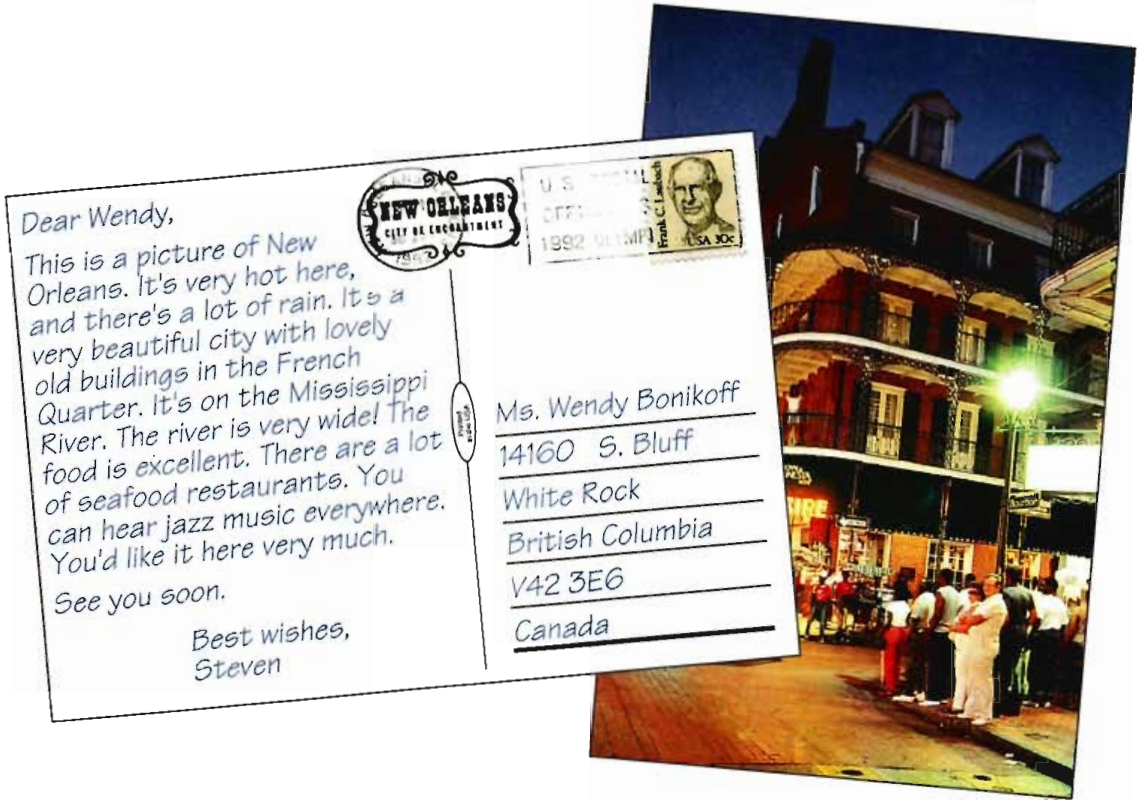 Dear Wendy,
This is a picture of New
Orleans. It's very hot here,
and there's a lot of rain. It's a
very beautiful city with lovely
old buildings in the French
Quarter. It's on the Mississippi
River. The river is very wide! The
food is excellent. There are a lot
of seafood restaurants. You
can hear jazz music everywhere.
You'd like it here very much.
See you soon.
Best wishes,
Steven
NEW ORLEANS
CITY OF ENCHANTMENT
U.S.
1992 OLYMPI
Frank C. Laubach
USA 30c
Ms. Wendy Bonikoff
14160 S. Bluff
White Rock
British Columbia
V42 3E6
Canada